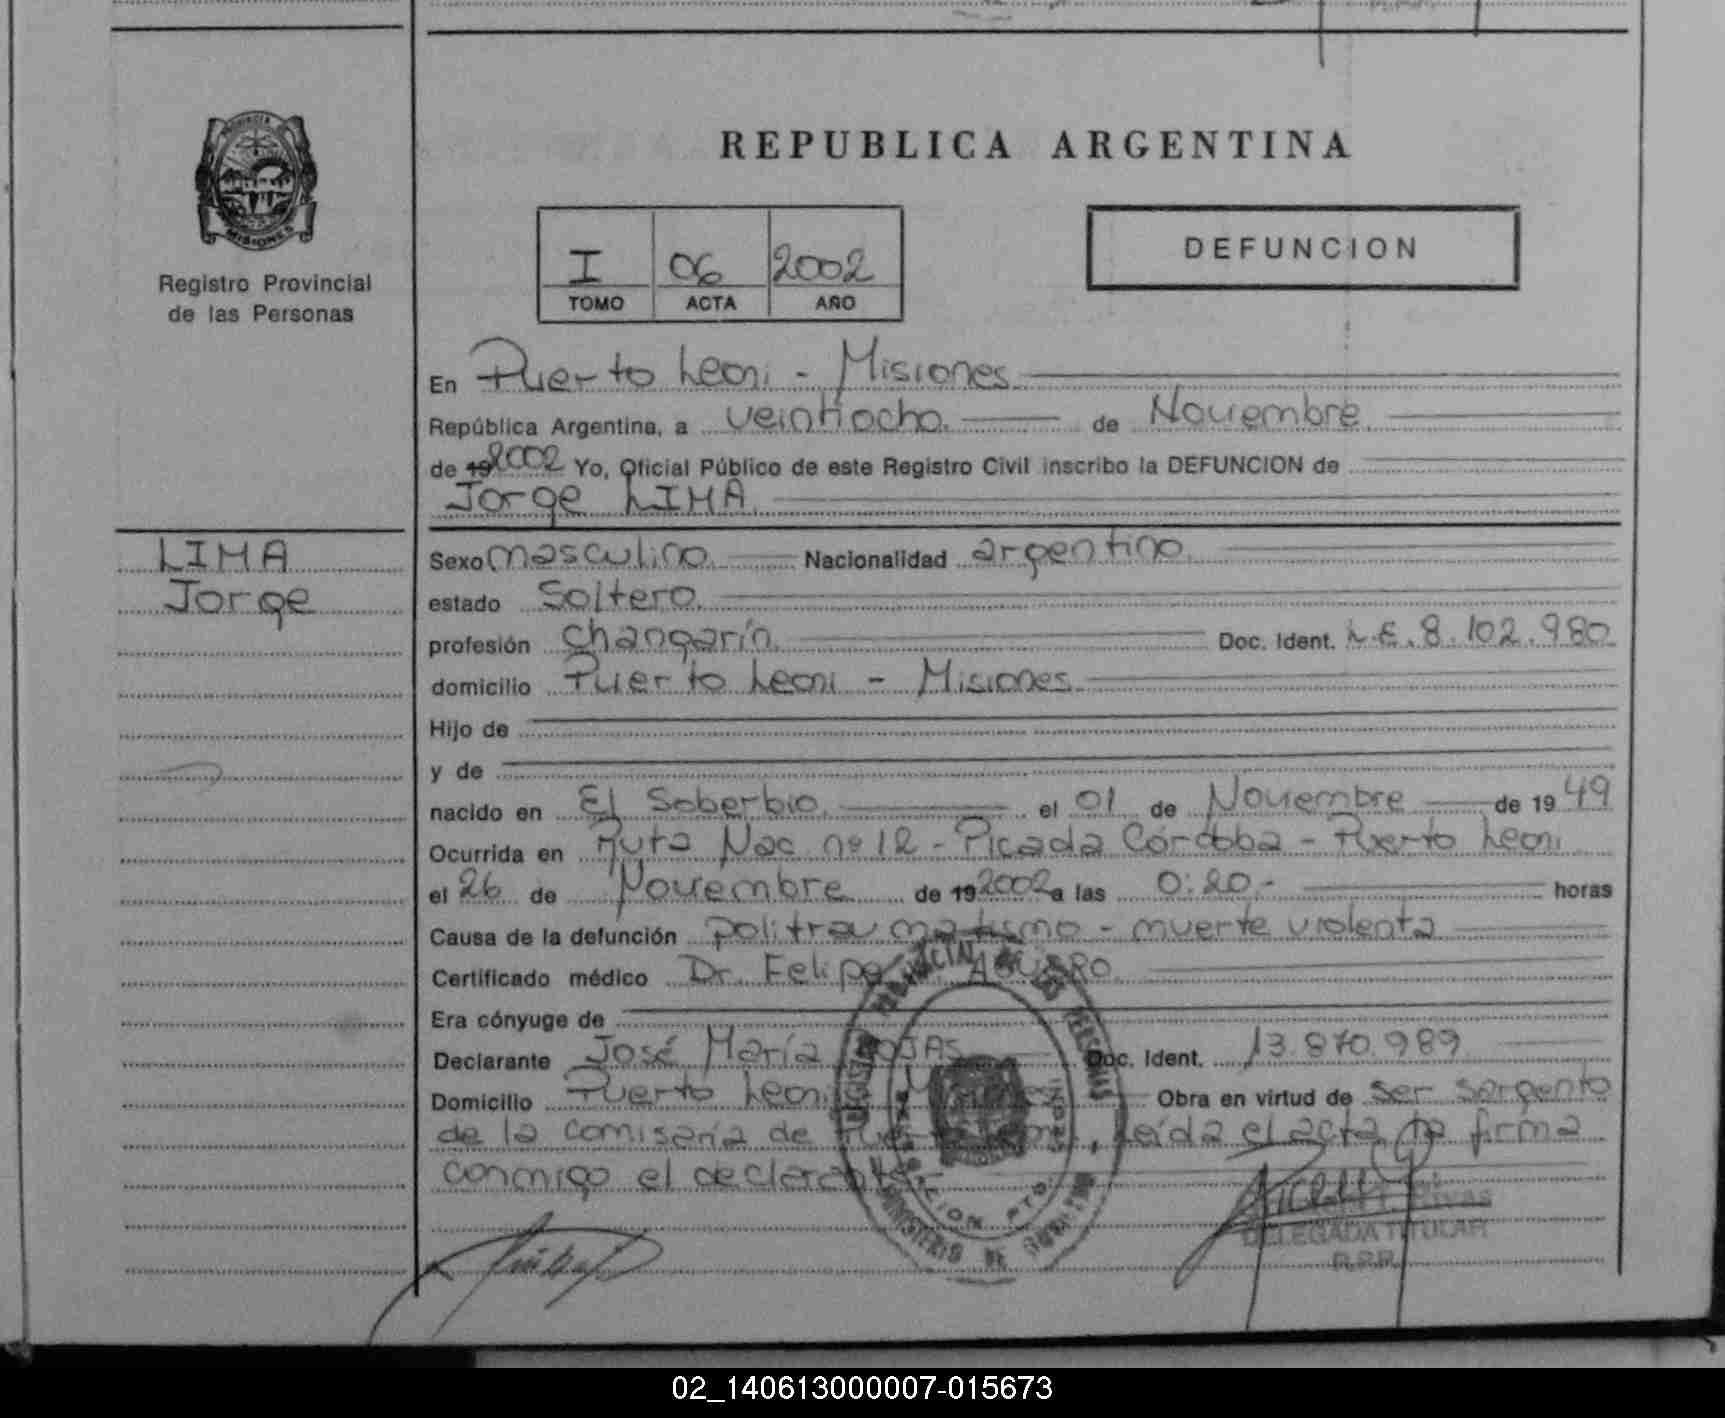 REPUBLICA ARGENTINA
PROVINCIA
MISIONES
Registro Provincial
de las Personas
I 06 2002
TOMO ACTA AÑO
DEFUNCION
En Puerto Leoni - Misiones
República Argentina, a veintiocho. de Noviembre.
de 19 2002 Yo, Oficial Público de este Registro Civil inscribo la DEFUNCION de
Jorge LIMA.
LIMA
Jorge
Sexo masculino. Nacionalidad argentino.
estado Soltero.
profesión changarín. Doc. Ident. L.E. 8.102.980
domicilio Puerto Leoni - Misiones.
Hijo de
y de
nacido en El Soberbio. el 01 de Noviembre de 19 49
Ocurrida en Ruta Nac. nº 12 - Picada Córdoba - Puerto Leoni
el 26 de Noviembre de 19 2002 a las 0:20.- horas
Causa de la defunción politraumatismo - muerte violenta
Certificado médico Dr. Felipe AGUERO.
Era cónyuge de
Declarante José María ROJAS Doc. Ident. 13.870.989
Domicilio Puerto Leoni - Misiones Obra en virtud de ser sargento
de la comisaría de Puerto Leoni, leída el acta la firma
conmigo el declarante.-
Rivas
DELEGADA TITULAR
R.P.P.
02_140613000007-015673